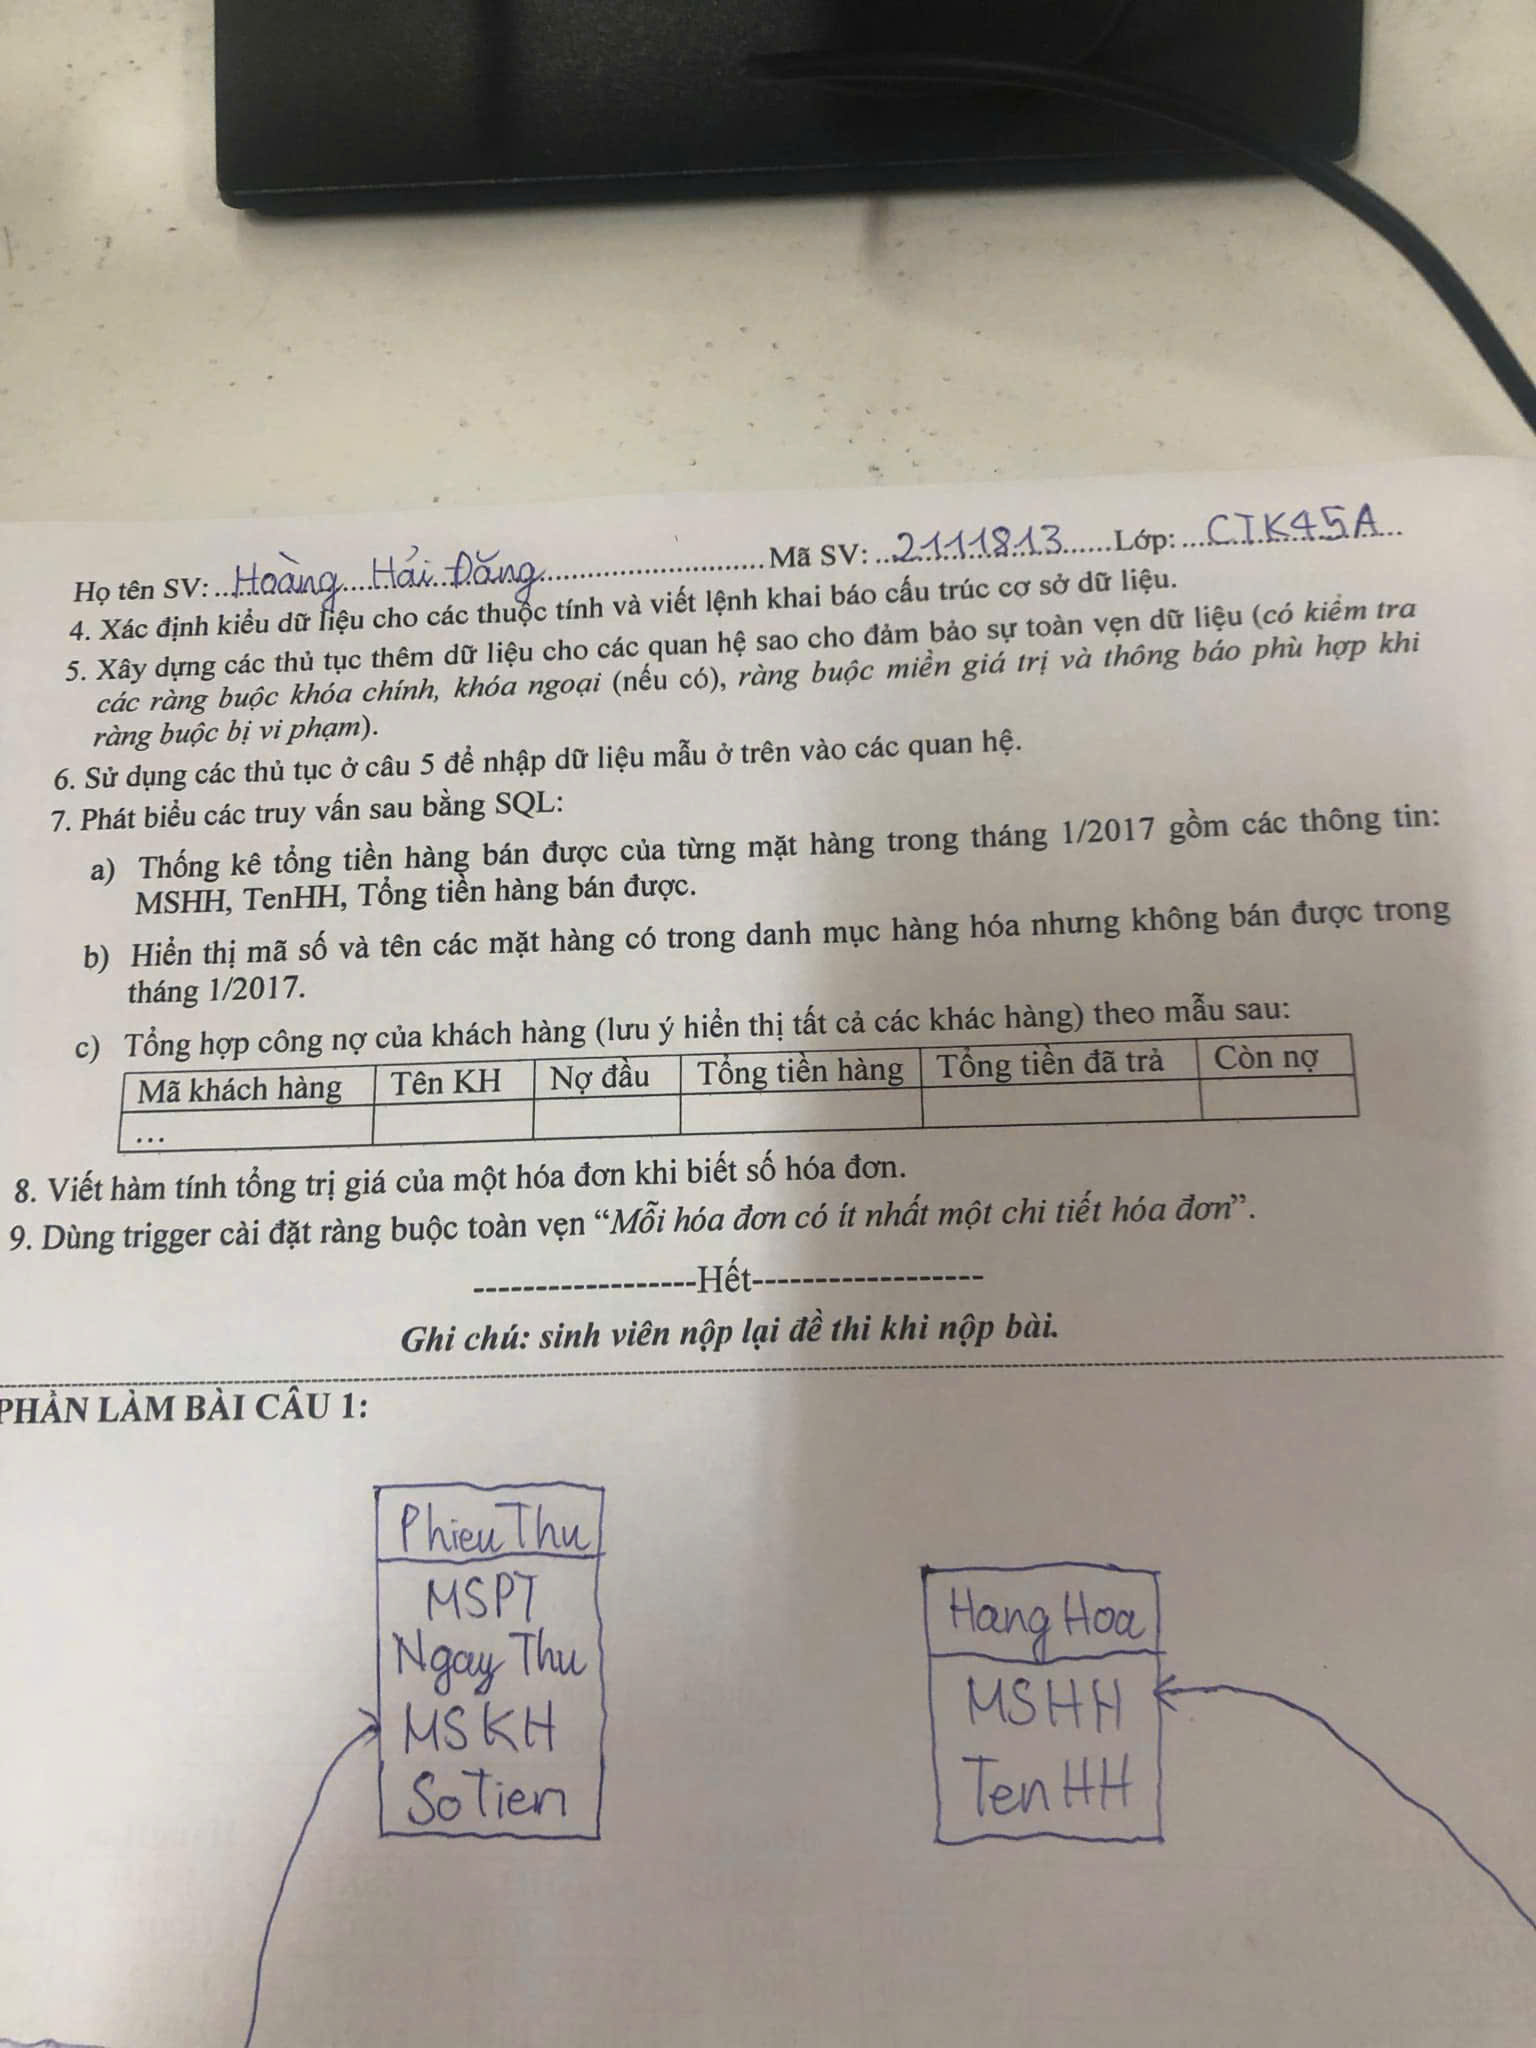 Họ tên SV: Hoàng Hải Đăng Mã SV: 2111813 Lớp: CTK45A
4. Xác định kiểu dữ liệu cho các thuộc tính và viết lệnh khai báo cấu trúc cơ sở dữ liệu.
5. Xây dựng các thủ tục thêm dữ liệu cho các quan hệ sao cho đảm bảo sự toàn vẹn dữ liệu (có kiểm tra
các ràng buộc khóa chính, khóa ngoại (nếu có), ràng buộc miền giá trị và thông báo phù hợp khi
ràng buộc bị vi phạm).
6. Sử dụng các thủ tục ở câu 5 để nhập dữ liệu mẫu ở trên vào các quan hệ.
7. Phát biểu các truy vấn sau bằng SQL:
a) Thống kê tổng tiền hàng bán được của từng mặt hàng trong tháng 1/2017 gồm các thông tin:
MSHH, TenHH, Tổng tiền hàng bán được.
b) Hiển thị mã số và tên các mặt hàng có trong danh mục hàng hóa nhưng không bán được trong
tháng 1/2017.
c) Tổng hợp công nợ của khách hàng (lưu ý hiển thị tất cả các khác hàng) theo mẫu sau:
Mã khách hàng Tên KH Nợ đầu Tổng tiền hàng Tổng tiền đã trả Còn nợ
...
8. Viết hàm tính tổng trị giá của một hóa đơn khi biết số hóa đơn.
9. Dùng trigger cài đặt ràng buộc toàn vẹn “Mỗi hóa đơn có ít nhất một chi tiết hóa đơn”.
------------------Hết-------------------
Ghi chú: sinh viên nộp lại đề thi khi nộp bài.
PHẦN LÀM BÀI CÂU 1:
PhieuThu
MSPT
NgayThu
MSKH
SoTien
HangHoa
MSHH
TenHH